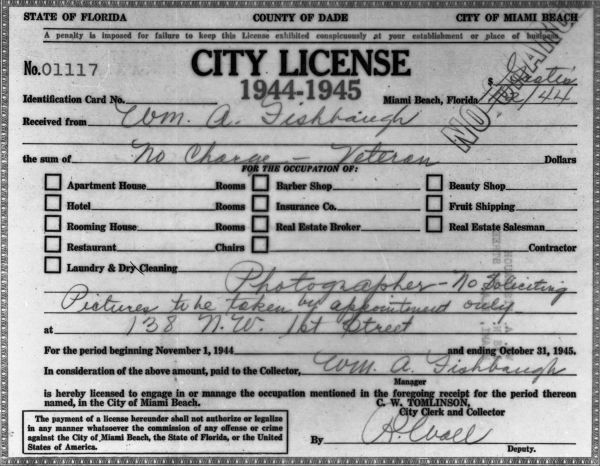 STATE OF FLORIDA COUNTY OF DADE CITY OF MIAMI BEACH
A penalty is imposed for failure to keep this License exhibited conspicuously at your establishment or place of business
No. 01117 CITY LICENSE $ Gratis
1944-1945
NO CHARGE
Identification Card No. Miami Beach, Florida /44
Received from Wm. A. Fishbaugh
the sum of No Charge - Veteran Dollars
FOR THE OCCUPATION OF:
Apartment House Rooms Barber Shop Beauty Shop
Hotel Rooms Insurance Co. Fruit Shipping
Rooming House Rooms Real Estate Broker Real Estate Salesman
Restaurant Chairs Contractor
Laundry & Dry Cleaning
Photographer - No Soliciting
Pictures to be taken by appointment only
at 138 N.W. 1st Street
For the period beginning November 1, 1944 and ending October 31, 1945.
In consideration of the above amount, paid to the Collector, Wm. A. Fishbaugh
Manager
is hereby licensed to engage in or manage the occupation mentioned in the foregoing receipt for the period thereon
named, in the City of Miami Beach. C. W. TOMLINSON,
City Clerk and Collector
The payment of a license hereunder shall not authorize or legalize
in any manner whatsoever the commission of any offense or crime
against the City of Miami Beach, the State of Florida, or the United
States of America.
By
Deputy.